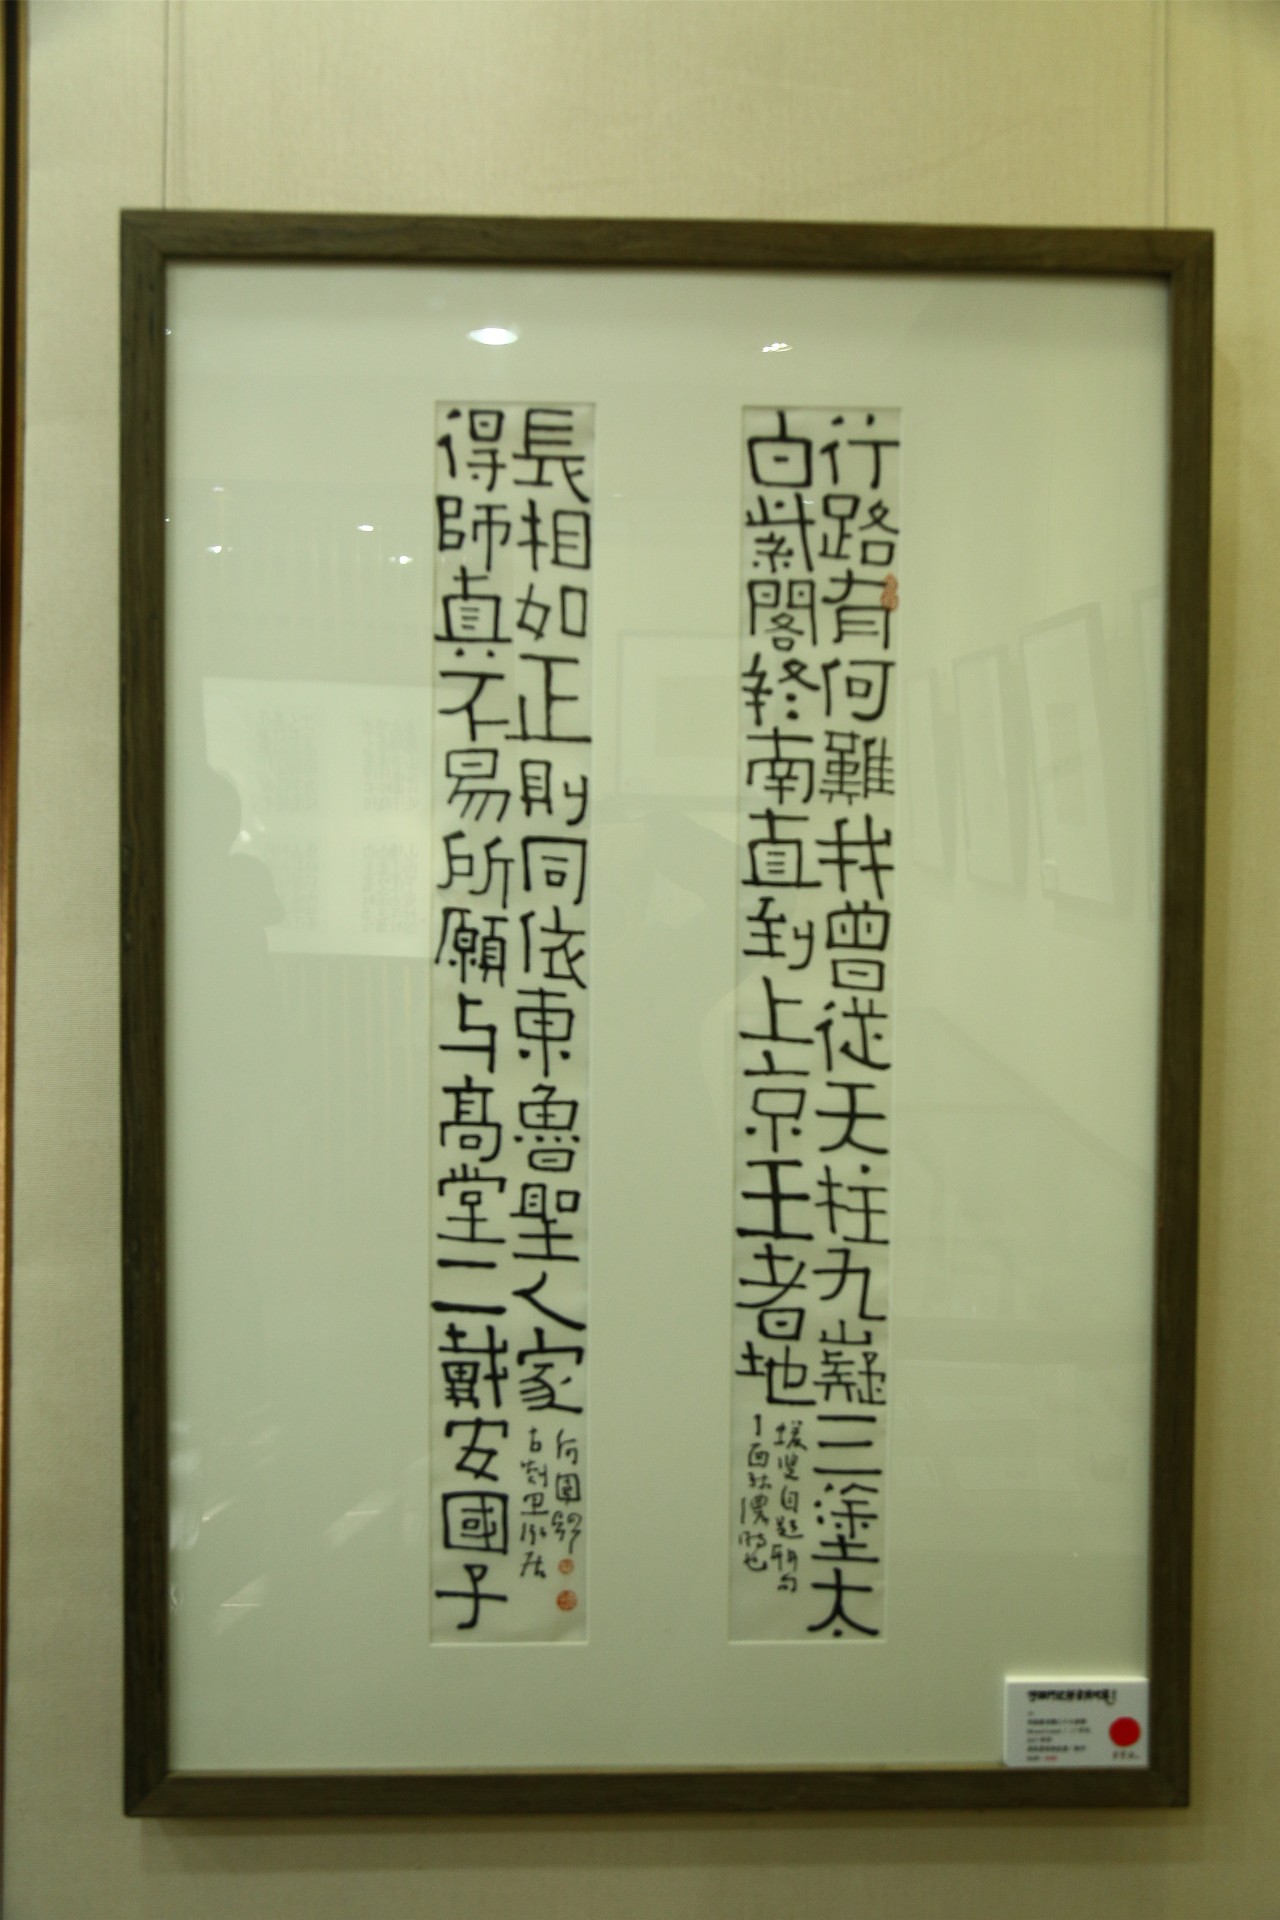 行路有何難我曾從天柱九嶷三塗太
白紫閣終南直到上京王者地
叟自題聯句
丁酉秋濃時也
長相如正則同依東魯聖人家
得師真不易所願与高堂二戴安國子
何國
古